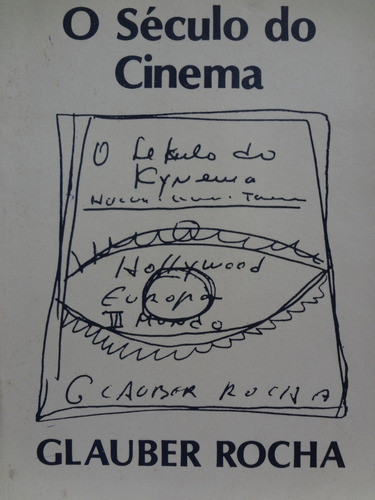 O Século do
Cinema
O Sekulo do
Kynema
Hollywood
Europa
III Mundo
GLAUBER ROCHA
GLAUBER ROCHA